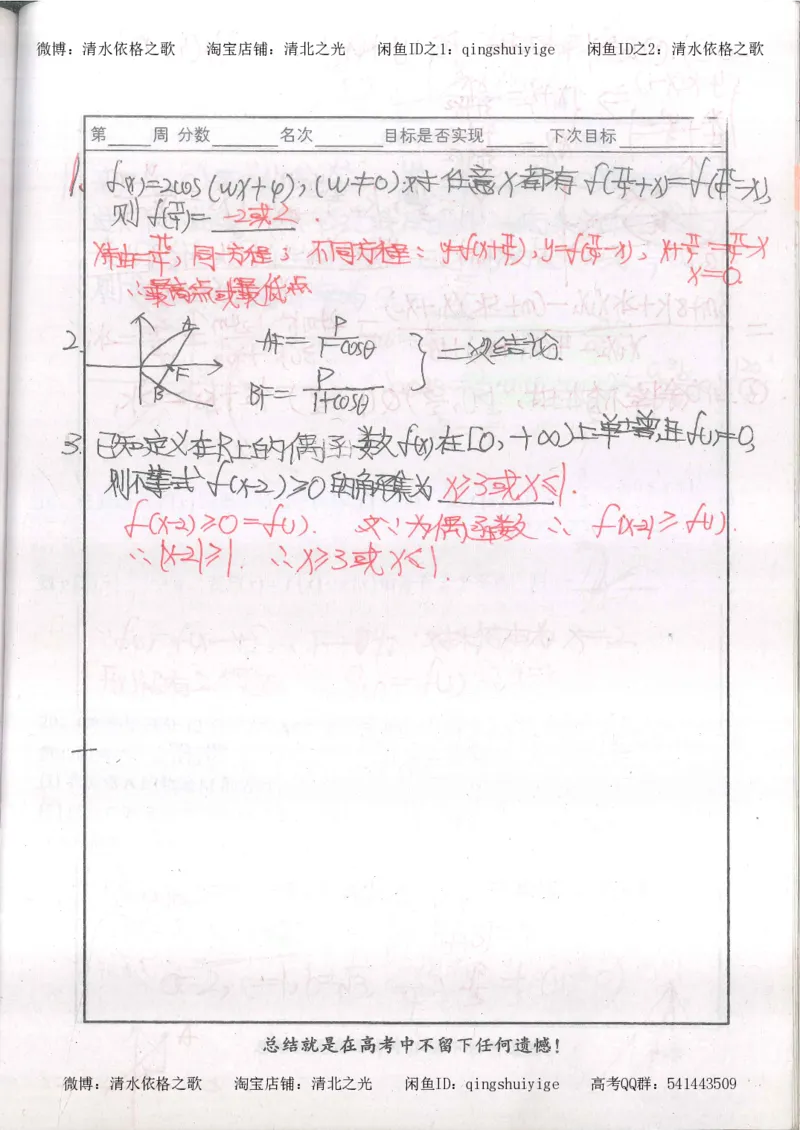 微博：清水依格之歌 淘宝店铺：清北之光 闲鱼ID之1：qingshuiyige 闲鱼ID之2：清水依格之歌
第____周 分数______名次______目标是否实现______下次目标________
1. f(x)=2cos(wx+φ),(w≠0)对任意x都有f(π/4+x)=f(π/4-x),
则f(π/4)= -2或2.
同一方程; 不同方程: y=f(x+π/4), y=f(π/4-x), x+π/4=π/4-x
x=0.
∴最高点或最低点
2. A F B AF=P/(1-cosθ)
BF=P/(1+cosθ) } 二次结论.
3. 已知定义在R上的偶函数f(x)在[0,+∞)上单增,且f(1)=0,
则不等式f(x-2)≥0的解集为 x≥3或x≤1.
f(x-2)≥0=f(1). 又∵为偶函数 ∴ f|x-2|≥f(1).
∴|x-2|≥1. ∴x≥3或x≤1
总结就是在高考中不留下任何遗憾！
微博：清水依格之歌 淘宝店铺：清北之光 闲鱼ID：qingshuiyige 高考QQ群：541443509